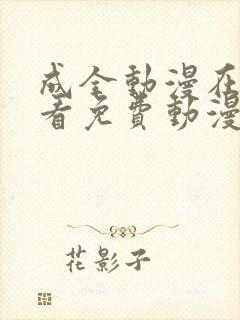 成全動漫在
看免費動漫
花影子